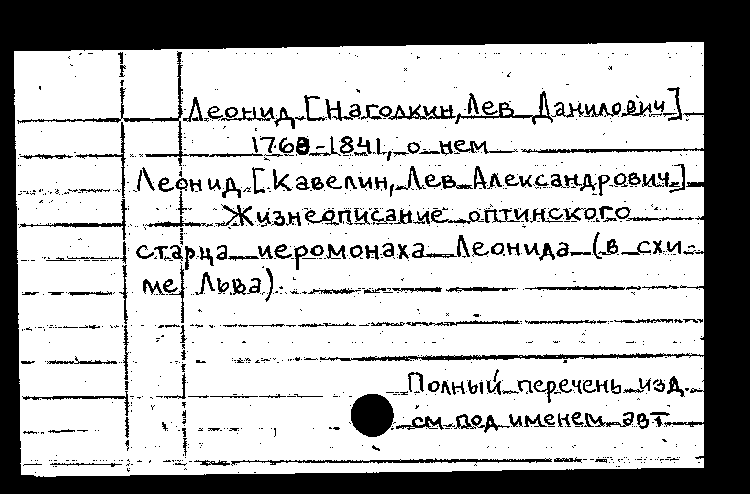 Леонид [Наголкин, Лев Данилович]
1768-1841, о нем
Леонид [Кавелин, Лев Александрович]
Жизнеописание оптинского
старца иеромонаха Леонида (в схи-
ме Льва).
Полный перечень изд.
см под именем авт